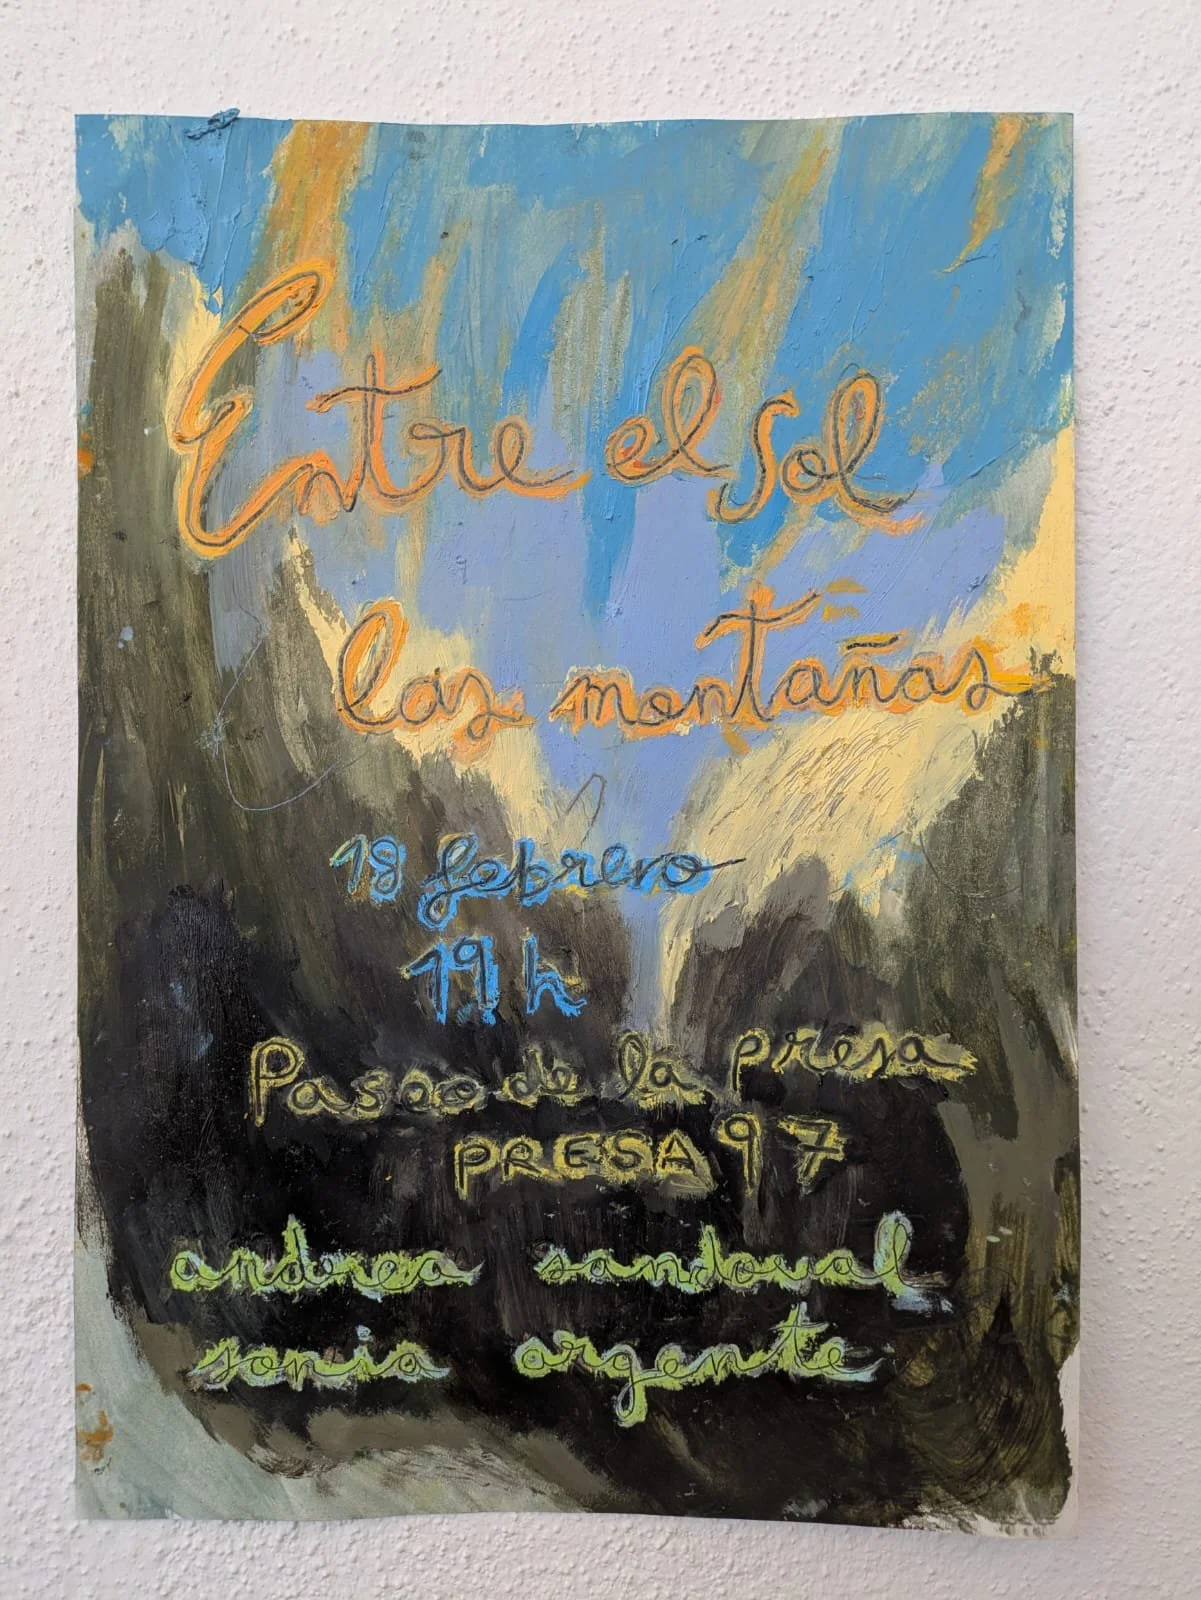 Entre el sol
las montañas
18 febrero
19 h
Paseo de la presa
PRESA 97
andrea sandoval
sonia argente